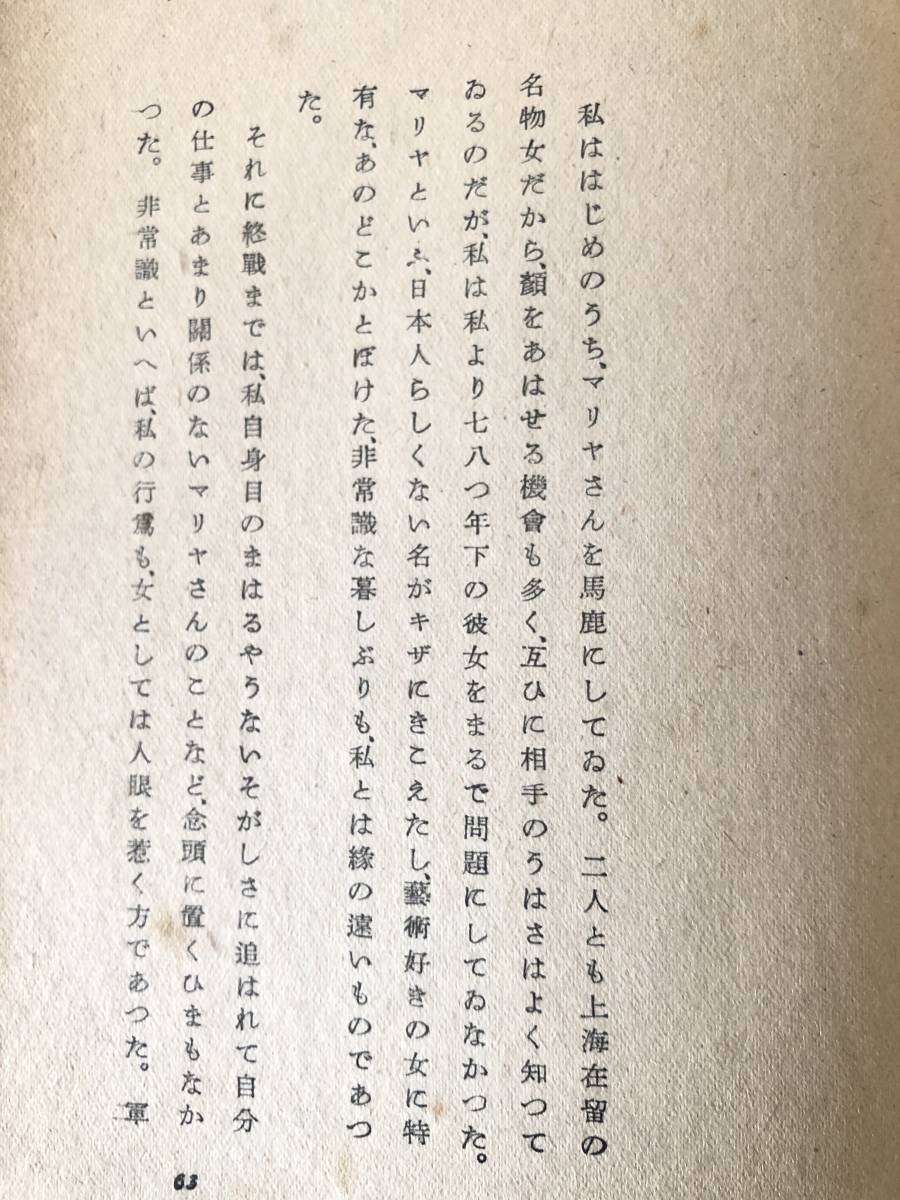 私ははじめのうち、マリヤさんを馬鹿にしてゐた。二人とも上海在留の
名物女だから、顏をあはせる機會も多く、互ひに相手のうはさはよく知つて
ゐるのだが、私は私より七八つ年下の彼女をまるで問題にしてゐなかつた。
マリヤといふ、日本人らしくない名がキザにきこえたし、藝術好きの女に特
有な、あのどこかとぼけた、非常識な暮しぶりも、私とは緣の遠いものであつ
た。
それに終戰までは、私自身目のまはるやうないそがしさに追はれて自分
の仕事とあまり關係のないマリヤさんのことなど、念頭に置くひまもなか
つた。非常識といへば、私の行爲も、女としては人眼を惹く方であつた。軍
63